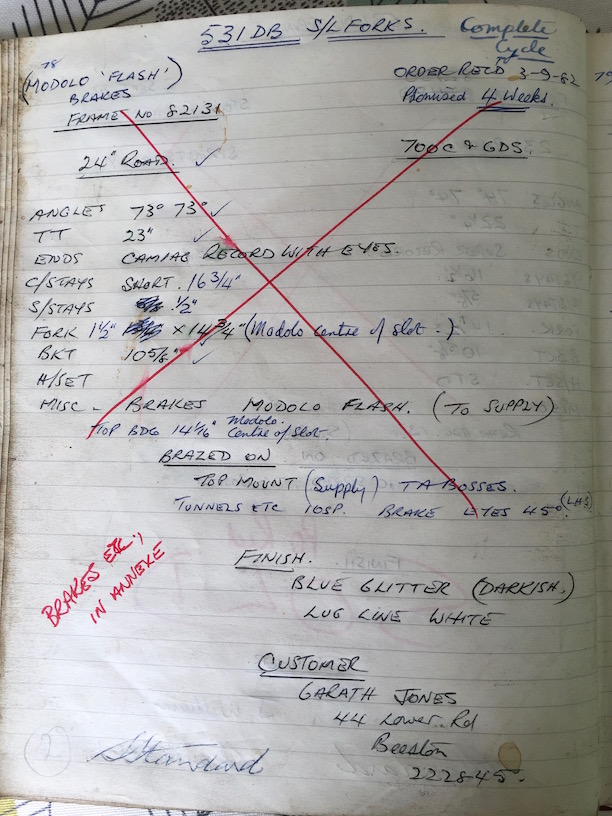 531 DB S/L FORKS. Complete Cycle
78
(MODOLO 'FLASH') BRAKES
ORDER RECD 3-9-82
Promised 4 Weeks.
FRAME NO 82131
24" ROAD. ✓
700C & GDS.
ANGLES 73° 73° ✓
TT 23" ✓
ENDS CAMPAG RECORD WITH EYES.
C/STAYS SHORT. 16 3/4"
S/STAYS 1/2"
FORK 1 1/2" × 14 3/4" (Modolo centre of slot.)
BKT 10 5/8" ✓
H/SET
MISC - BRAKES MODOLO FLASH. (TO SUPPLY)
TOP BDG 14 1/16" Modolo. Centre of Slot.
BRAZED ON
TOP MOUNT (Supply) TA BOSSES.
TUNNELS ETC 10SP. BRAKE EYES 45° (LHS)
BRAKES ETC., IN ANNEXE
FINISH.
BLUE GLITTER (DARKISH.)
LUG LINE WHITE
CUSTOMER
GARATH JONES
44 Lower Rd
Beeston
222845.
2
Standard